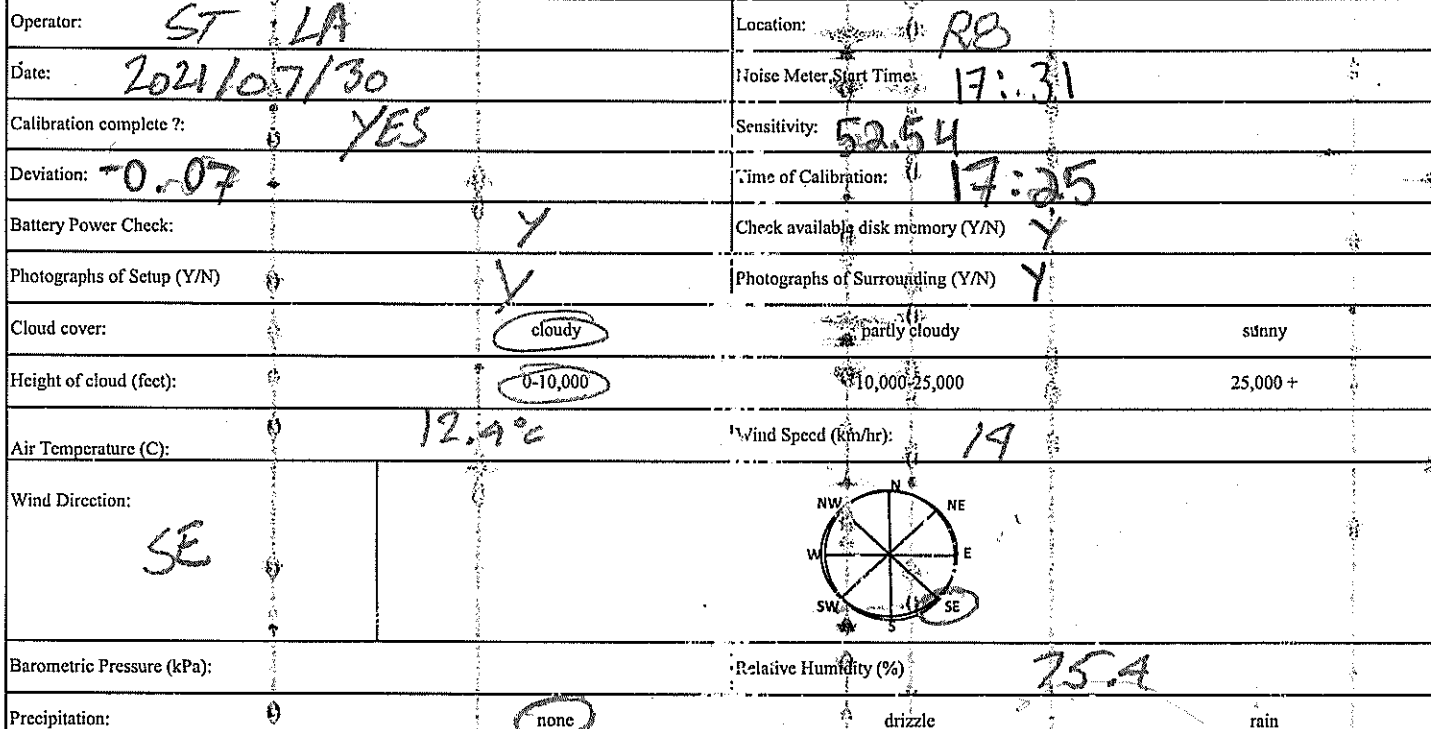 Operator: ST LA Location: R8
Date: 2021/07/30 Noise Meter Start Time: 17:31
Calibration complete ?: YES Sensitivity: 52.54
Deviation: -0.07 Time of Calibration: 17:25
Battery Power Check: Y Check available disk memory (Y/N) Y
Photographs of Setup (Y/N) Y Photographs of Surrounding (Y/N) Y
Cloud cover: cloudy partly cloudy sunny
Height of cloud (feet): 0-10,000 10,000-25,000 25,000 +
Air Temperature (C): 12.4°C Wind Speed (km/hr): 14
Wind Direction: SE
N
NW NE
W E
SW SE
S
Barometric Pressure (kPa): Relative Humidity (%) 75.4
Precipitation: none drizzle rain